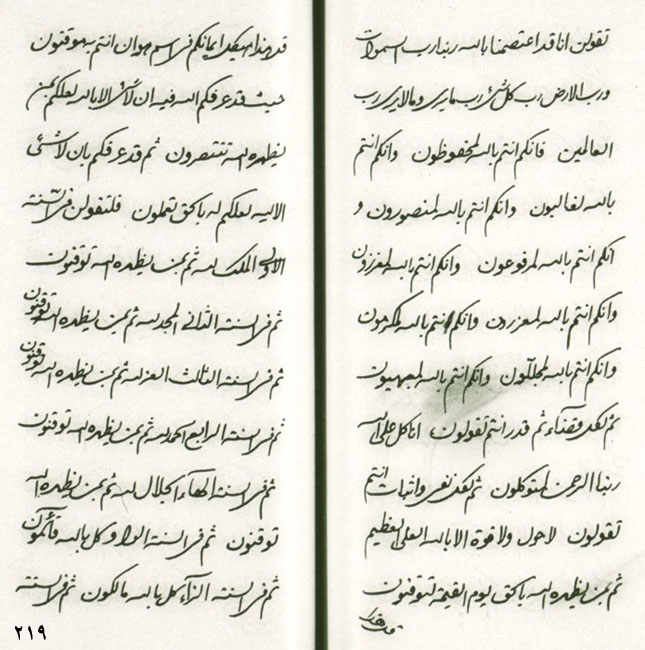 تقولن انا قد اعتصمنا بالله ربنا رب السموات
ورب الارض رب كل شئ رب مايرى ومالايرى رب
العالمين فانكم انتم بالله لمحفوظون وانكم انتم
بالله لغالبون وانكم انتم بالله لمنصورون و
انكم انتم بالله لمرفوعون وانكم انتم بالله لمعززون
وانكم انتم بالله وانكم انتم بالله لمكرمون
وانكم انتم بالله لمجللون وانكم انتم بالله
ثم لكل قضاء ثم قدر انتم تقولون انا كل على الله
ربنا الرحمن لمتوكلون ثم لكل نفى واثبات انتم
تقولون لاحول ولاقوة الا بالله العلى العظيم
ثم بمن يظهره الله بالحق يوم القيمة لتوقنون
قد هذا هيكل ايمانكم فى اسم هو ان انتم به موقنون
حيث قد عرفكم الله فيه ان لا شئ الا بالله لعلكم بمن
يظهره الله تنتصرون ثم قد عرفكم بان لا شئ
الا لله لعلكم له بالحق تعملون فلتقولن فى السنة
الاولى الملك لله ثم بمن يظهره الله توقنون
ثم فى السنة الثانى المجد لله ثم بمن يظهره الله توقنون
ثم فى السنة الثالث العز لله ثم بمن يظهره الله توقنون
ثم فى السنة الرابع الحمد لله ثم بمن يظهره الله توقنون
ثم فى السنة الهاء الجلال لله ثم بمن يظهره الله
توقنون ثم فى السنة الواو كل بالله قائمون
ثم فى السنة الزاء كل بالله مالكون ثم فى السنة
٢١٩